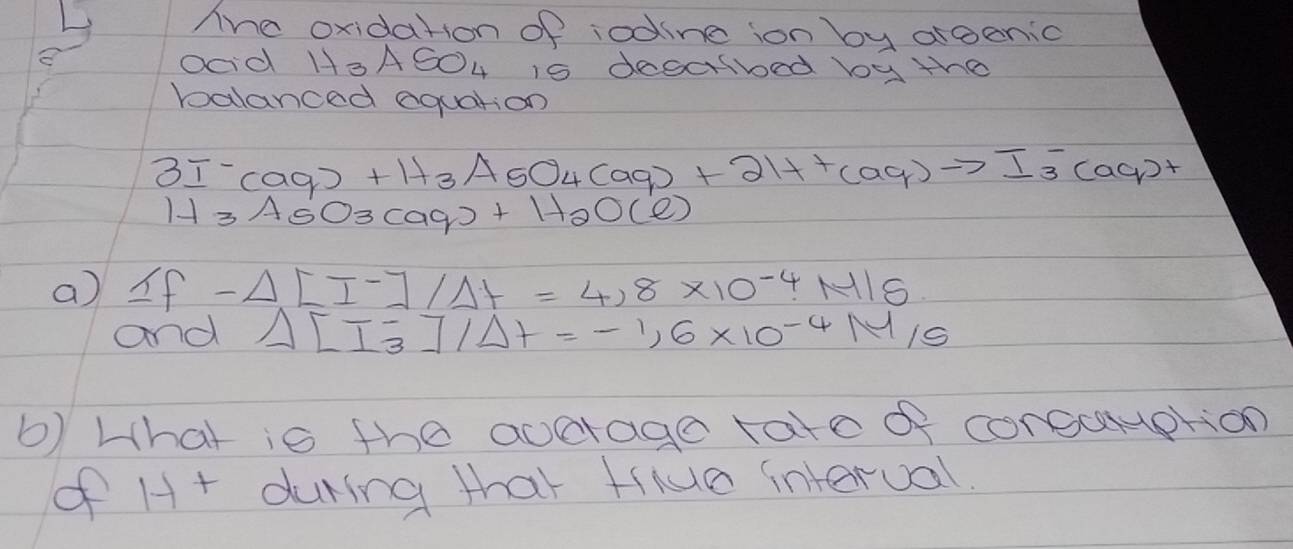 The oxidation of iodine ion by arsenic
acid H3AsO4 is described by the
balanced equation
3I⁻(aq) + H3AsO4(aq) + 2H⁺(aq) → I3⁻(aq) +
H3AsO3(aq) + H2O(l)
a) If -Δ[I⁻]/Δt = 4,8 ×10⁻⁴ M/s.
and Δ[I3⁻]/Δt = -1,6×10⁻⁴ M/s
b) What is the average rate of consumption
of H+ during that time interval.